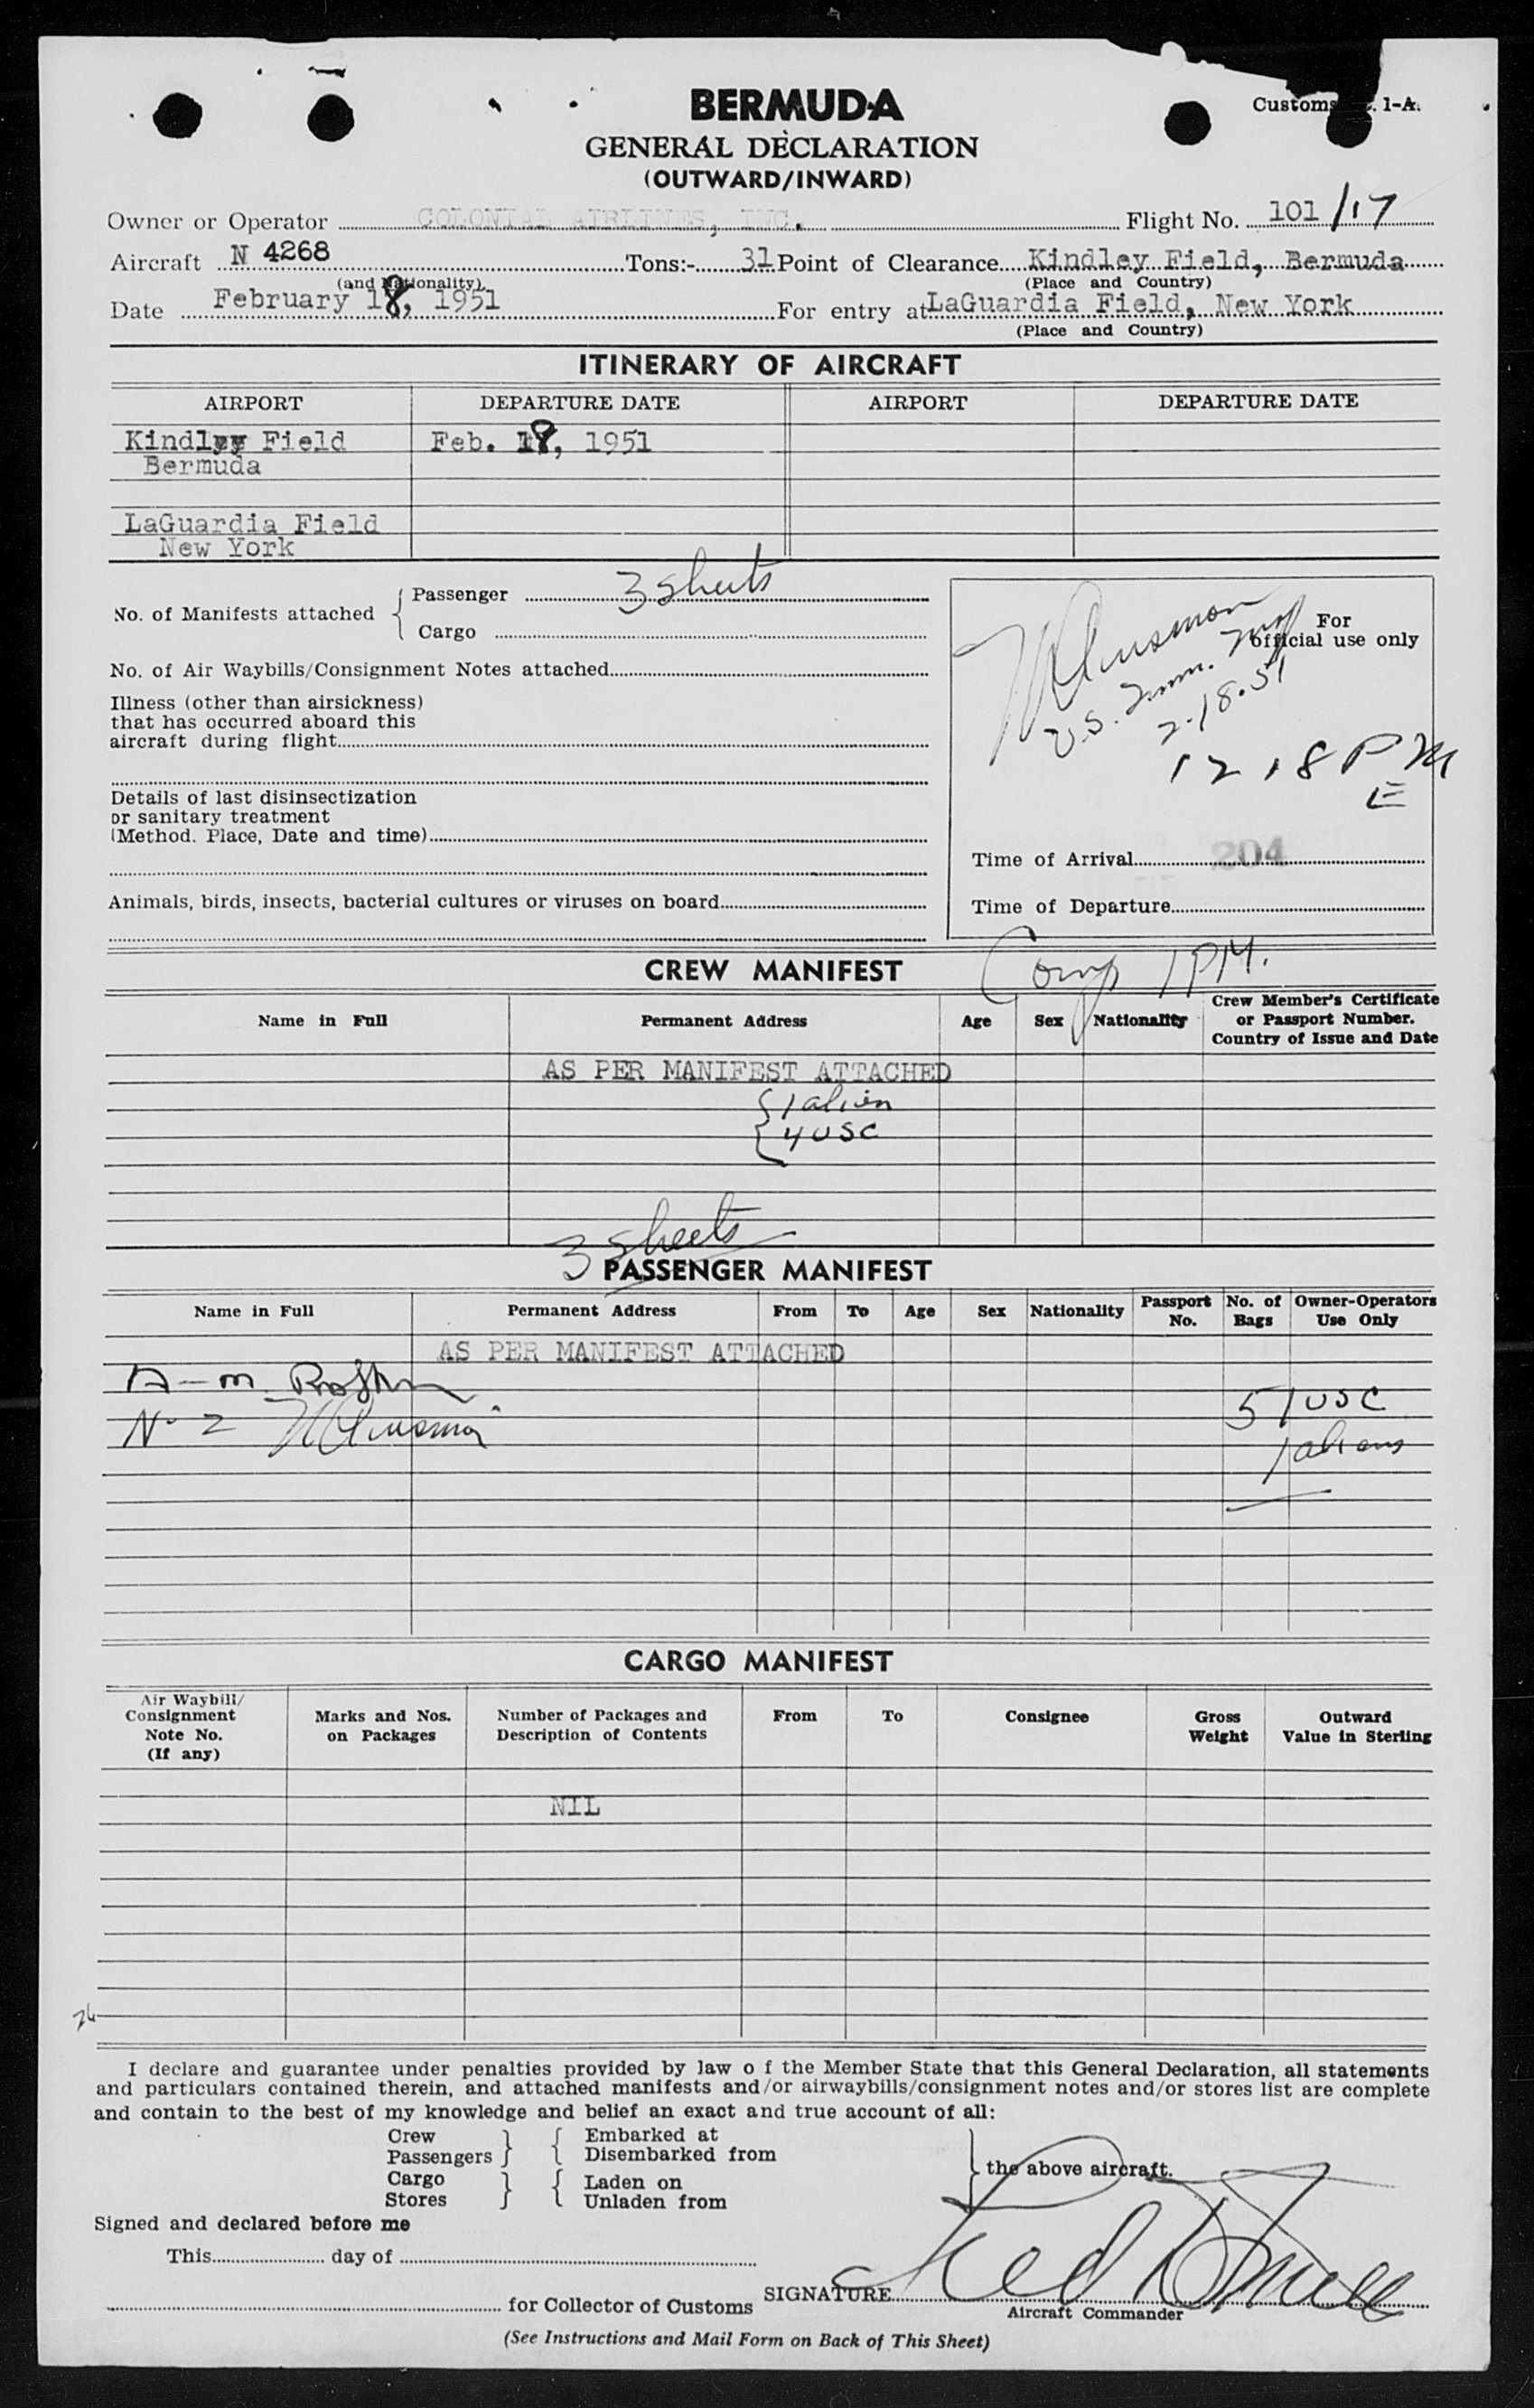 BERMUDA
Customs 1-A.
GENERAL DECLARATION
(OUTWARD/INWARD)
Owner or Operator COLONIAL AIRLINES, INC. Flight No. 101/17
Aircraft N 4268 Tons:- 31 Point of Clearance Kindley Field, Bermuda
(and Nationality) (Place and Country)
Date February 18, 1951 For entry at LaGuardia Field, New York
(Place and Country)
ITINERARY OF AIRCRAFT
AIRPORT DEPARTURE DATE AIRPORT DEPARTURE DATE
Kindley Field Feb. 18, 1951
Bermuda
LaGuardia Field
New York
No. of Manifests attached
Passenger 3 sheets
Cargo
No. of Air Waybills/Consignment Notes attached
Illness (other than airsickness)
that has occurred aboard this
aircraft during flight
Details of last disinsectization
or sanitary treatment
(Method. Place, Date and time)
Animals, birds, insects, bacterial cultures or viruses on board
For
official use only
U.S. Imm.
2-18-51
12 18 PM
E
Time of Arrival 204
Time of Departure
Comp 1 PM.
CREW MANIFEST
Name in Full Permanent Address Age Sex Nationality Crew Member's Certificate
or Passport Number.
Country of Issue and Date
AS PER MANIFEST ATTACHED
1 alien
4 USC
3 sheets
PASSENGER MANIFEST
Name in Full Permanent Address From To Age Sex Nationality Passport No. No. of Bags Owner-Operators Use Only
AS PER MANIFEST ATTACHED
A-M
51 USC
No 2
1 aliens
CARGO MANIFEST
Air Waybill/
Consignment
Note No.
(If any)
Marks and Nos.
on Packages
Number of Packages and
Description of Contents
From To Consignee
Gross
Weight
Outward
Value in Sterling
NIL
26
I declare and guarantee under penalties provided by law o f the Member State that this General Declaration, all statements
and particulars contained therein, and attached manifests and/or airwaybills/consignment notes and/or stores list are complete
and contain to the best of my knowledge and belief an exact and true account of all:
Crew Embarked at
Passengers Disembarked from
the above aircraft.
Cargo Laden on
Stores Unladen from
Signed and declared before me
This day of
SIGNATURE
for Collector of Customs
Aircraft Commander
(See Instructions and Mail Form on Back of This Sheet)